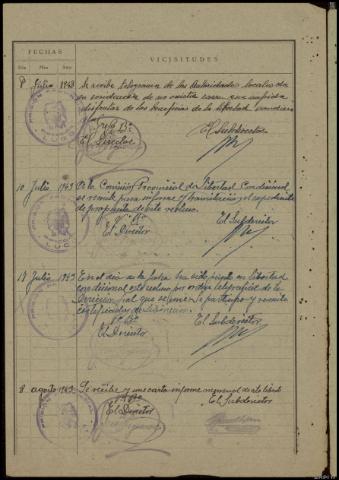 FECHAS
VICISITUDES
Día Mes Año
8 Julio 1943 Se recibe telegrama de las Autoridades locales de
su conducta de no existir
disfrutar de los beneficios de la libertad condicional
Vº Bº
El Director
El Subdirector
10 Julio 1943 A la Comisión Provincial de Libertad Condicional
se remite para informe y tramitación el expediente
de propuesta de este recluso.
Vº Bº
El Director
El Subdirector
18 Julio 1943 En el día de la fecha ha sido puesto en libertad
condicional este recluso por orden telegráfica de la
Dirección Gral que se une a la
certificación de liberación
Vº Bº
El Director
El Subdirector
8 agosto 1943 Se recibe y une carta informe mensual de este
Vº Bº
El Director
El Subdirector
LUGO